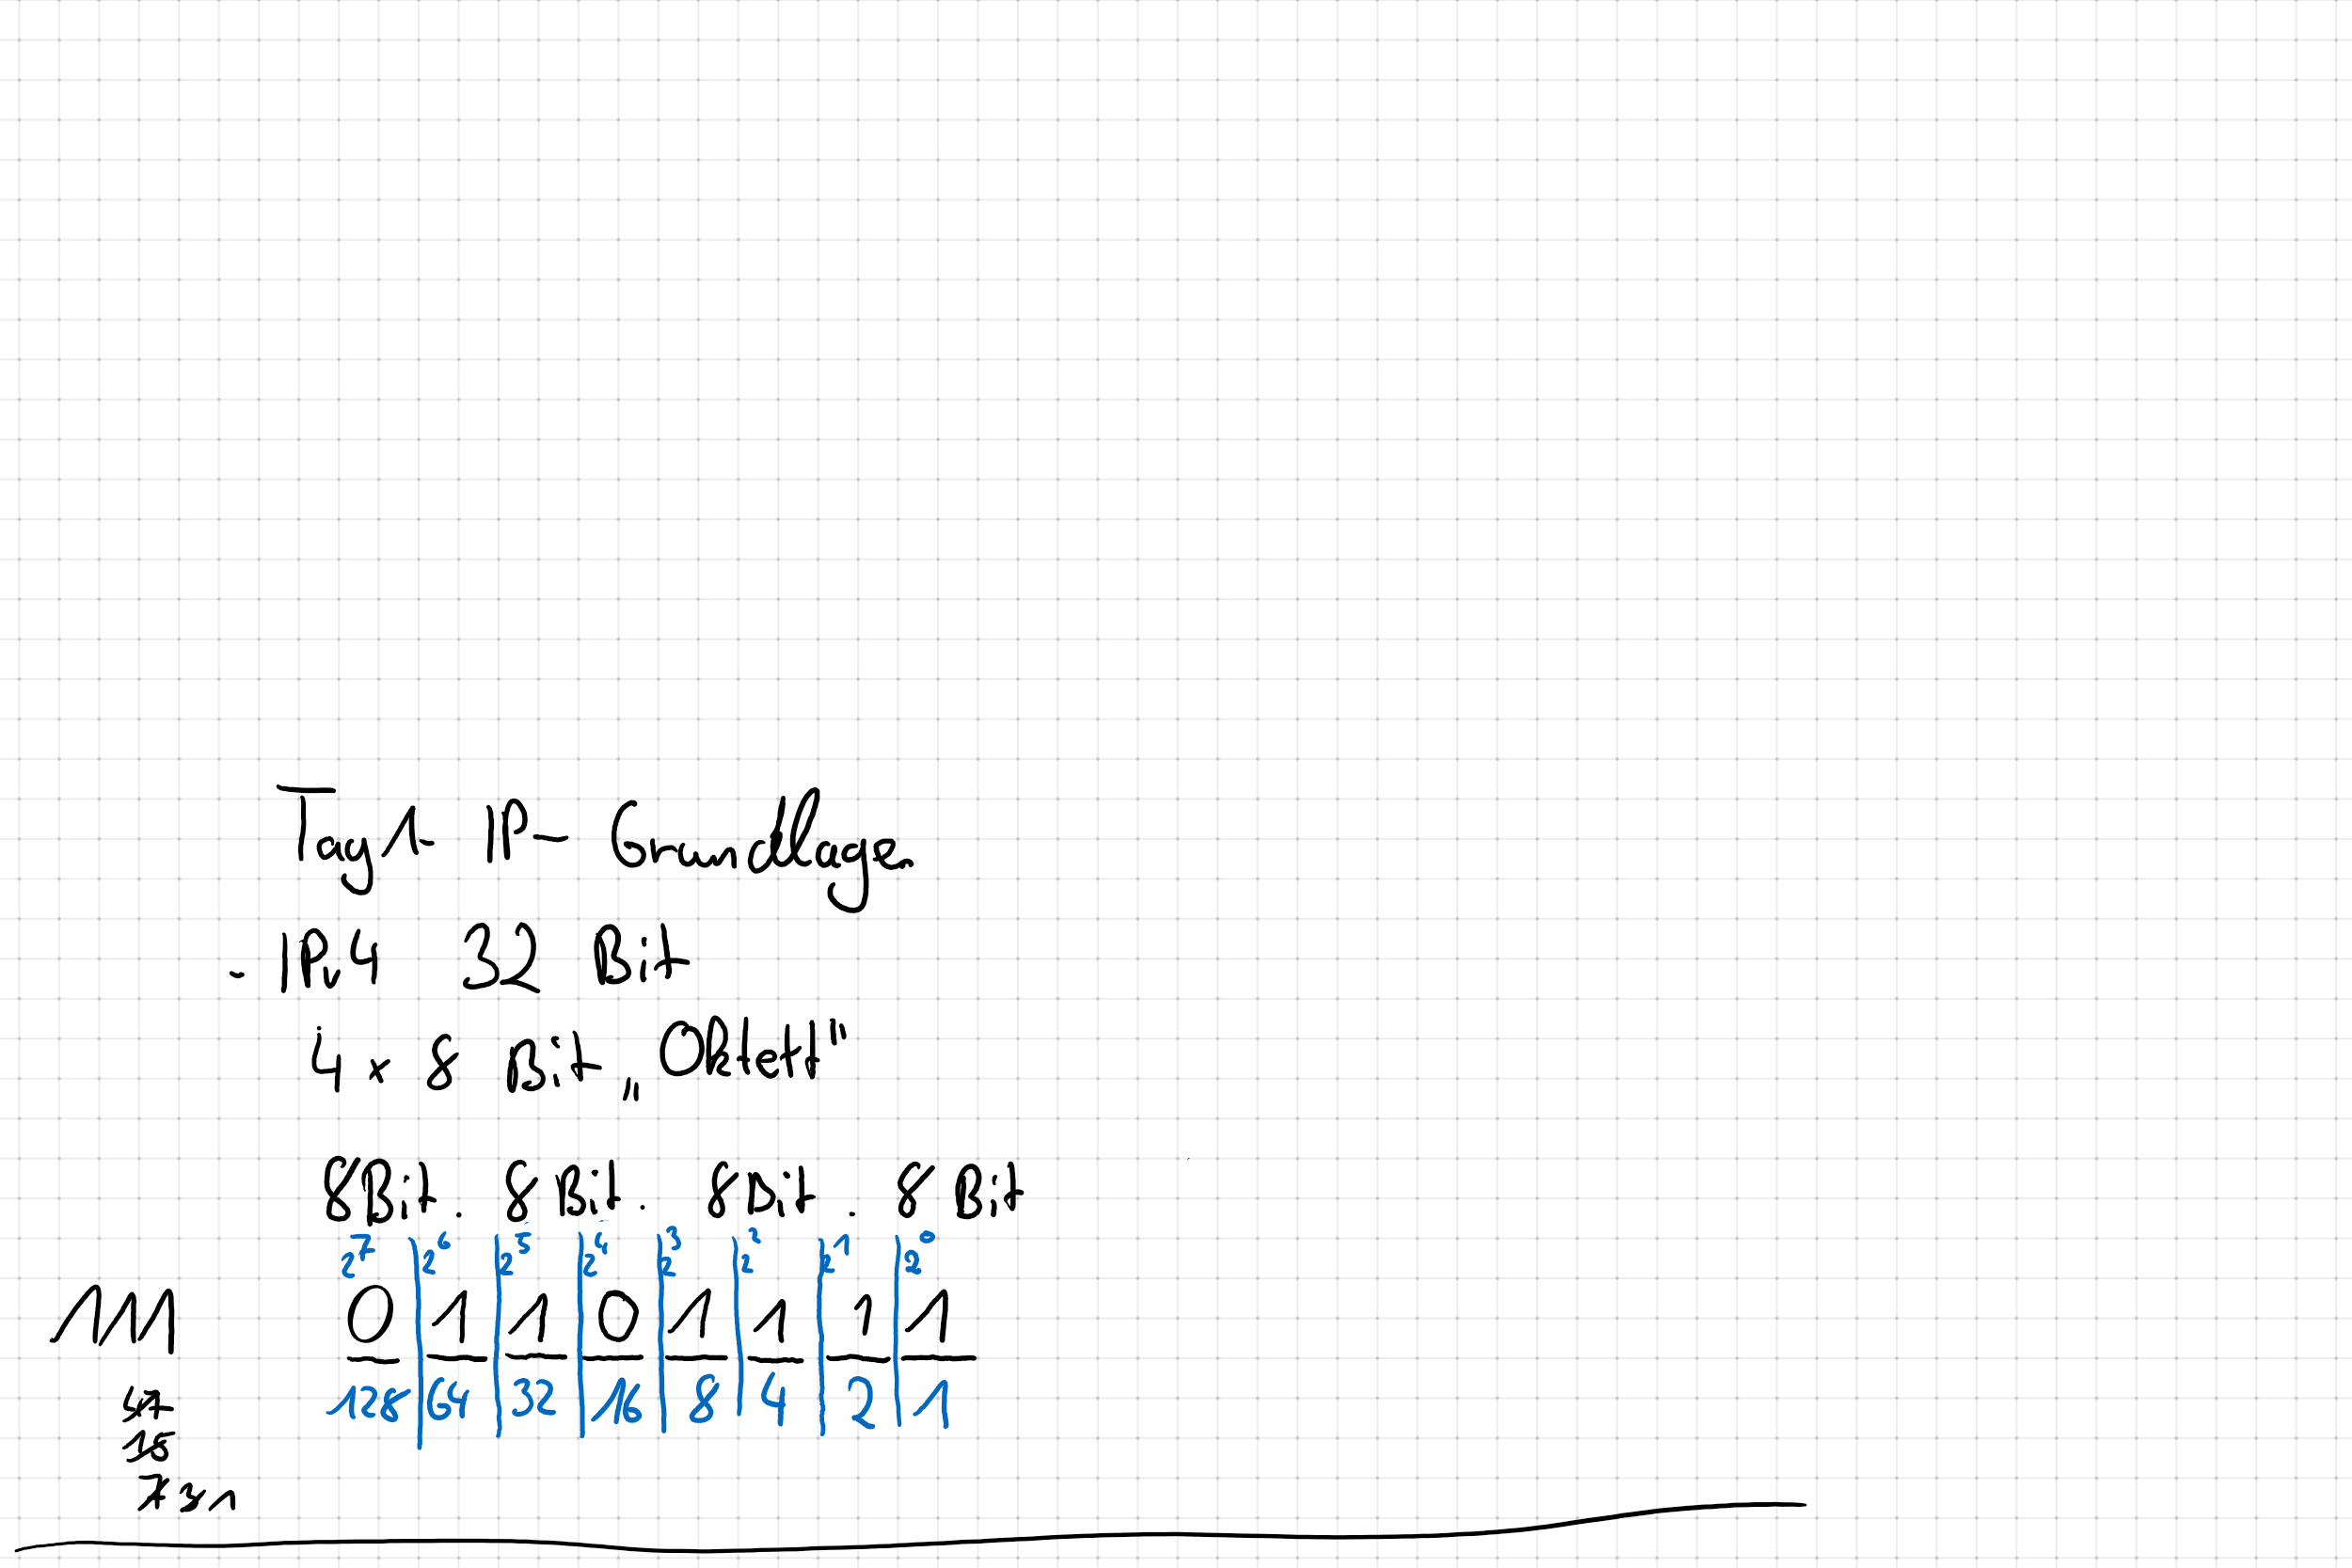 Tag 1 - IP - Grundlagen
- IPv4 32 Bit
4 x 8 Bit „Oktett"
8Bit. 8 Bit. 8Bit. 8 Bit
2^7 2^6 2^5 2^4 2^3 2^2 2^1 2^0
111 0 1 1 0 1 1 1 1
47 128 64 32 16 8 4 2 1
15
7 3 1